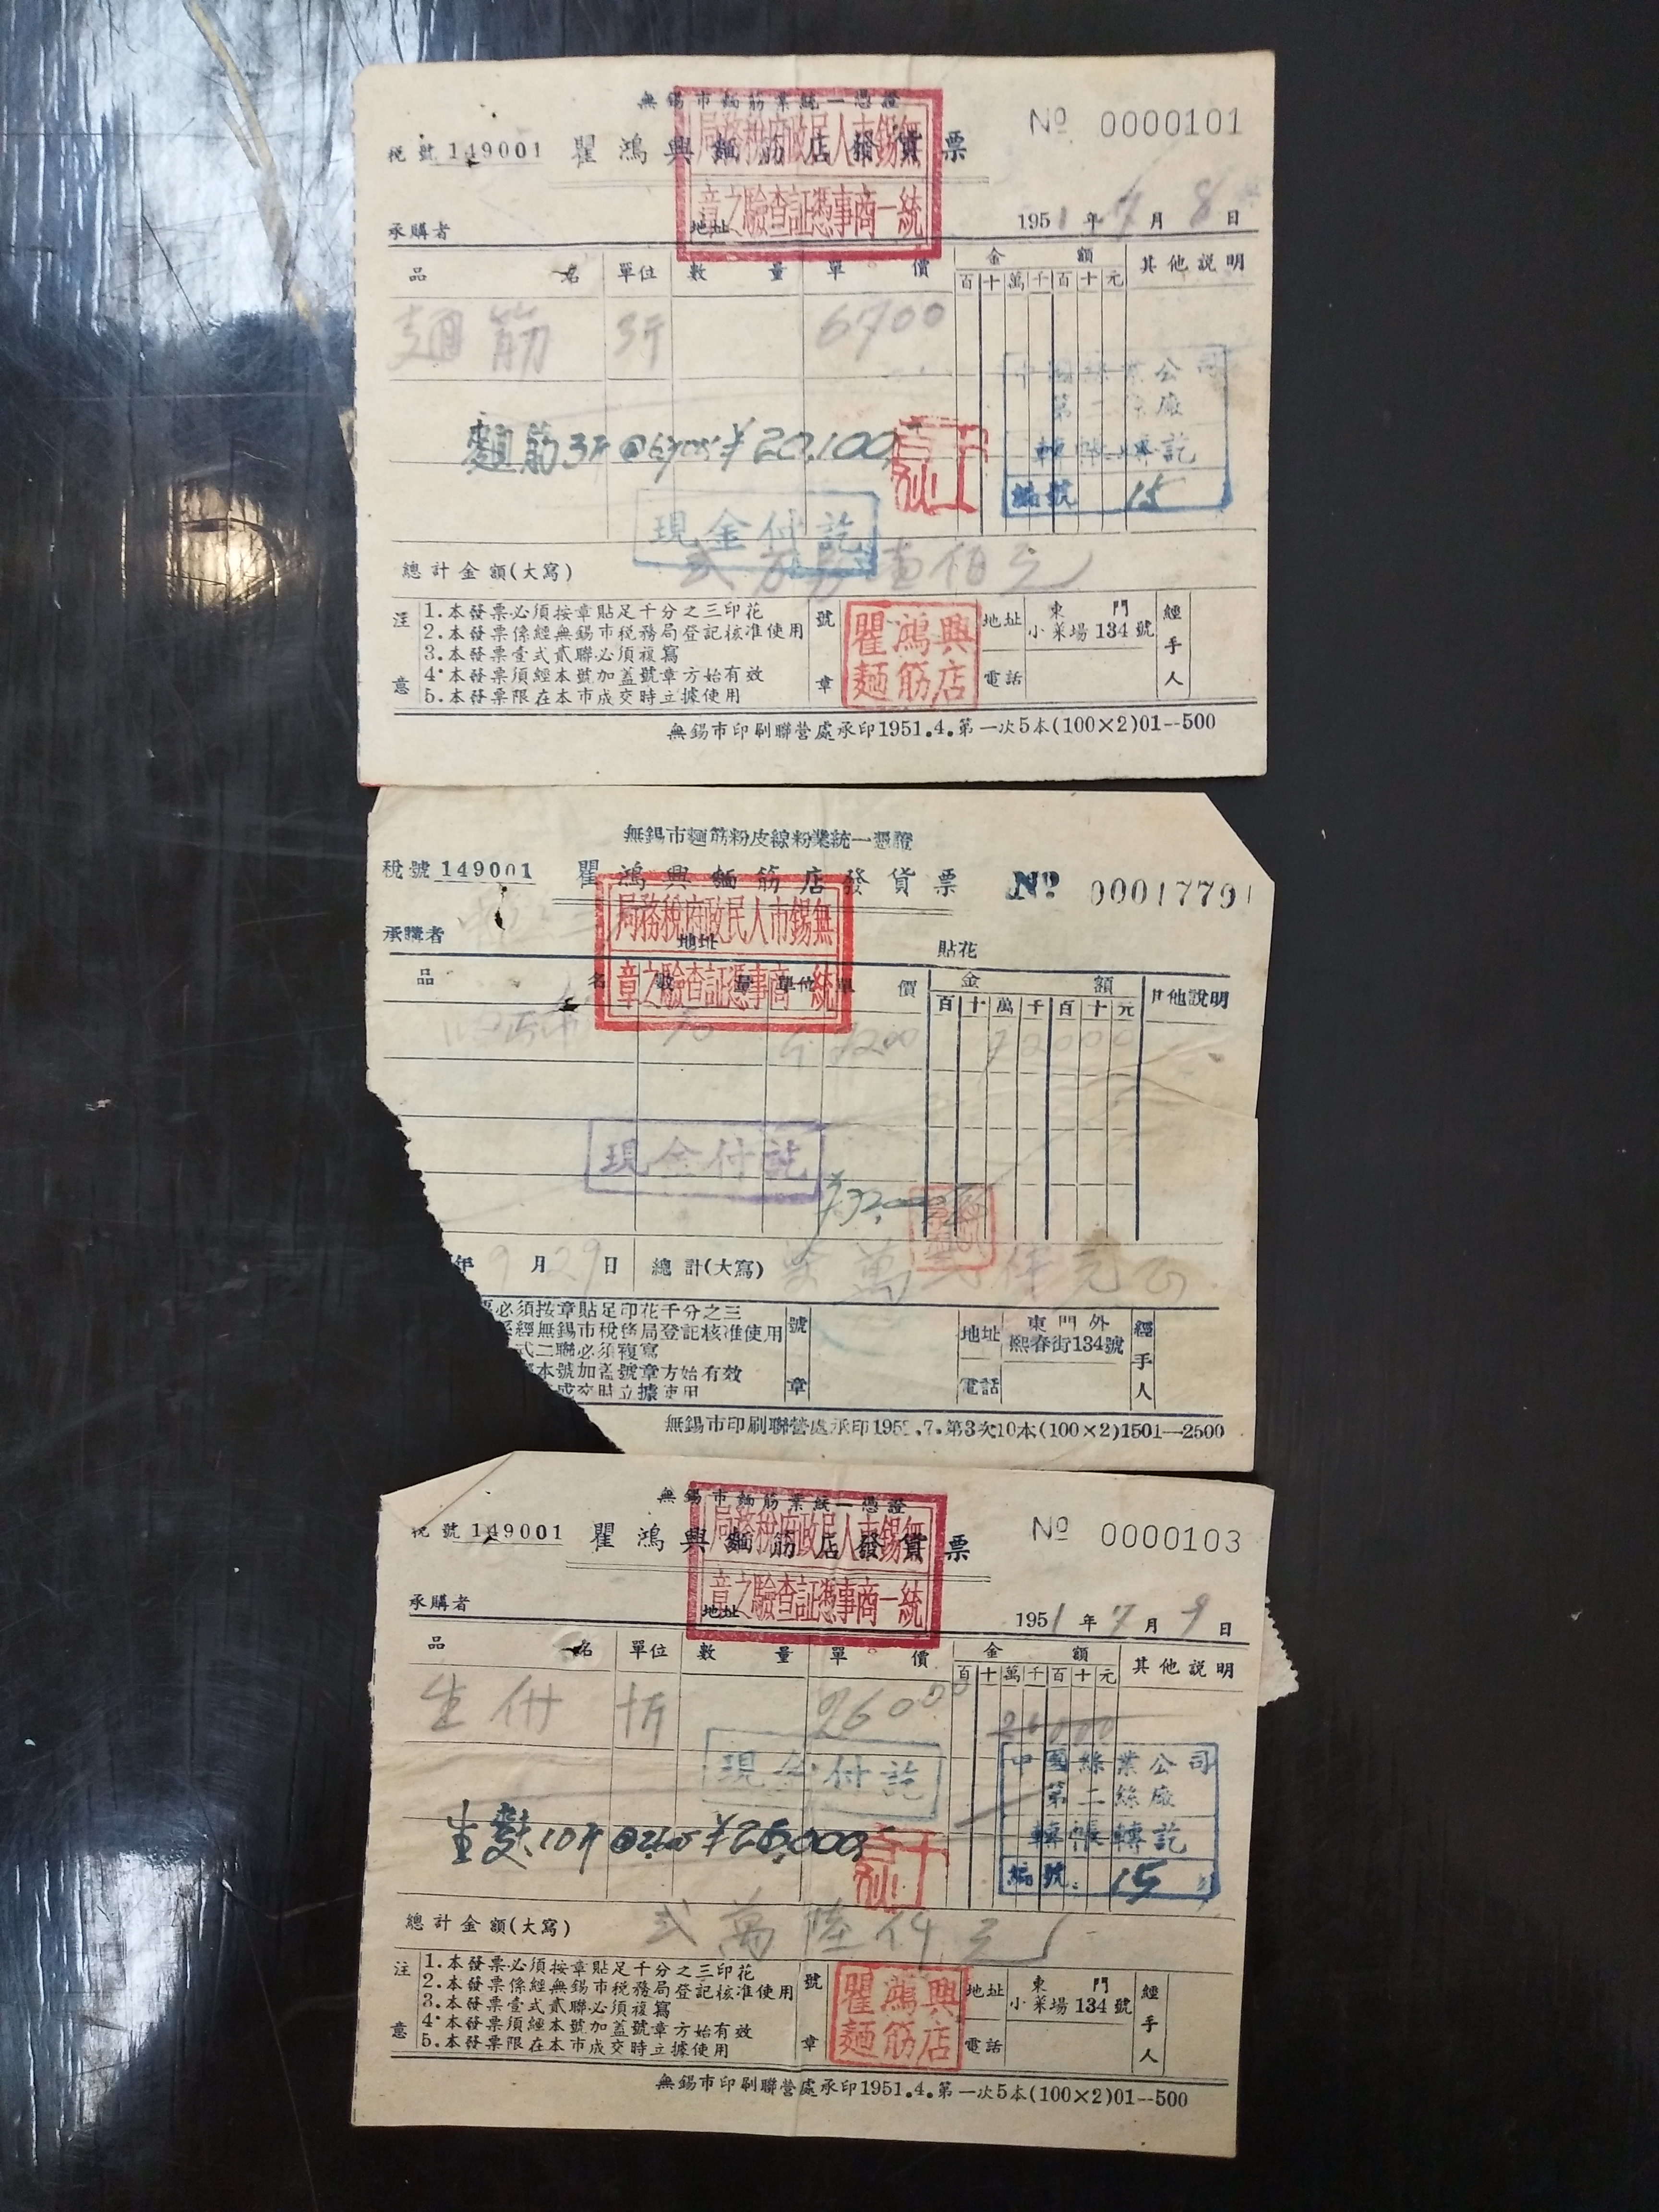 無錫市麵筋業統一憑證
稅號 149001 瞿鴻興麵筋店發貨票 № 0000101
局務稅府政民人市錫無
章之驗查証憑事商一統
承購者 地址 1951年7月8日
品名 單位 數量 單價 金額 其他説明
百十萬千百十元
麵筋 3斤 6700
中國絲業公司
第二絲廠
麵筋3斤 @6700 ¥20,100
轉帳轉訖
編號 15
現金付訖
總計金額(大寫) 弍万另壹佰元
注意
1.本發票必須按章貼足千分之三印花
2.本發票係經無錫市稅務局登記核准使用
3.本發票壹式貳聯必須複寫
4.本發票須經本號加蓋號章方始有效
5.本發票限在本市成交時立據使用
號章
瞿鴻興
麵筋店
地址 東門
小菜場134號
電話
經手人
無錫市印刷聯營處承印1951.4.第一次5本(100×2)01--500
無錫市麵筋粉皮線粉業統一憑證
稅號 149001 瞿鴻興麵筋店發貨票 № 0001779
局務稅府政民人市錫無
章之驗查証憑事商一統
承購者 地址 貼花
品名 數量 單位 單價 金額 其他說明
百十萬千百十元
10 7200 72000
現金付訖
年9月29日 總計(大寫) 柒萬弍仟元正
必須按章貼足印花千分之三
係經無錫市稅務局登記核准使用
式二聯必須複寫
本號加蓋號章方始有效
成交時立據使用
號章
地址 東門外
熙春街134號
電話
經手人
無錫市印刷聯營處承印195 .7.第3次10本(100×2)1501—2500
無錫市麵筋業統一憑證
稅號 149001 瞿鴻興麵筋店發貨票 № 0000103
局務稅府政民人市錫無
章之驗查証憑事商一統
承購者 地址 1951年7月9日
品名 單位 數量 單價 金額 其他説明
百十萬千百十元
生付 十斤 2600 26000
現金付訖
中國絲業公司
第二絲廠
生麩10斤 @2600 ¥26,000
轉帳轉訖
編號 15
總計金額(大寫) 弍萬陸仟元
注意
1.本發票必須按章貼足千分之三印花
2.本發票係經無錫市稅務局登記核准使用
3.本發票壹式貳聯必須複寫
4.本發票須經本號加蓋號章方始有效
5.本發票限在本市成交時立據使用
號章
瞿鴻興
麵筋店
地址 東門
小菜場134號
電話
經手人
無錫市印刷聯營處承印1951.4.第一次5本(100×2)01--500